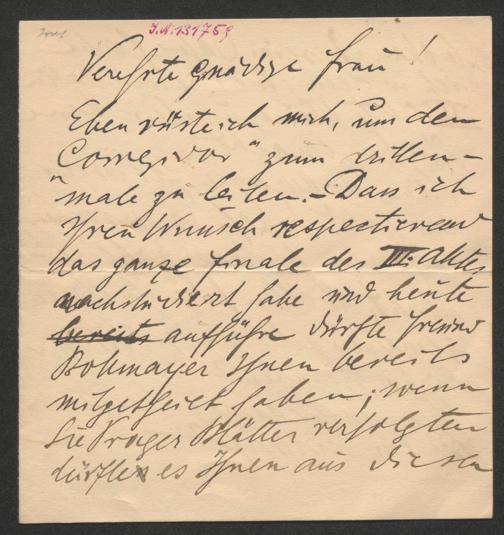 J.N. 131759
Verehrte gnädige Frau!
Eben rüste ich mich, um den
"Corregidor" zum dritten-
male zu leiten. – Dass ich
Ihren Wunsch respectierend
das ganze Finale des III. Aktes
nachstudiert habe und heute
bereits aufführe dürfte Freund
Bohmayer Ihnen bereits
mitgetheilt haben; wenn
Sie Prager Blätter verfolgten
dürften es Ihnen aus diesen